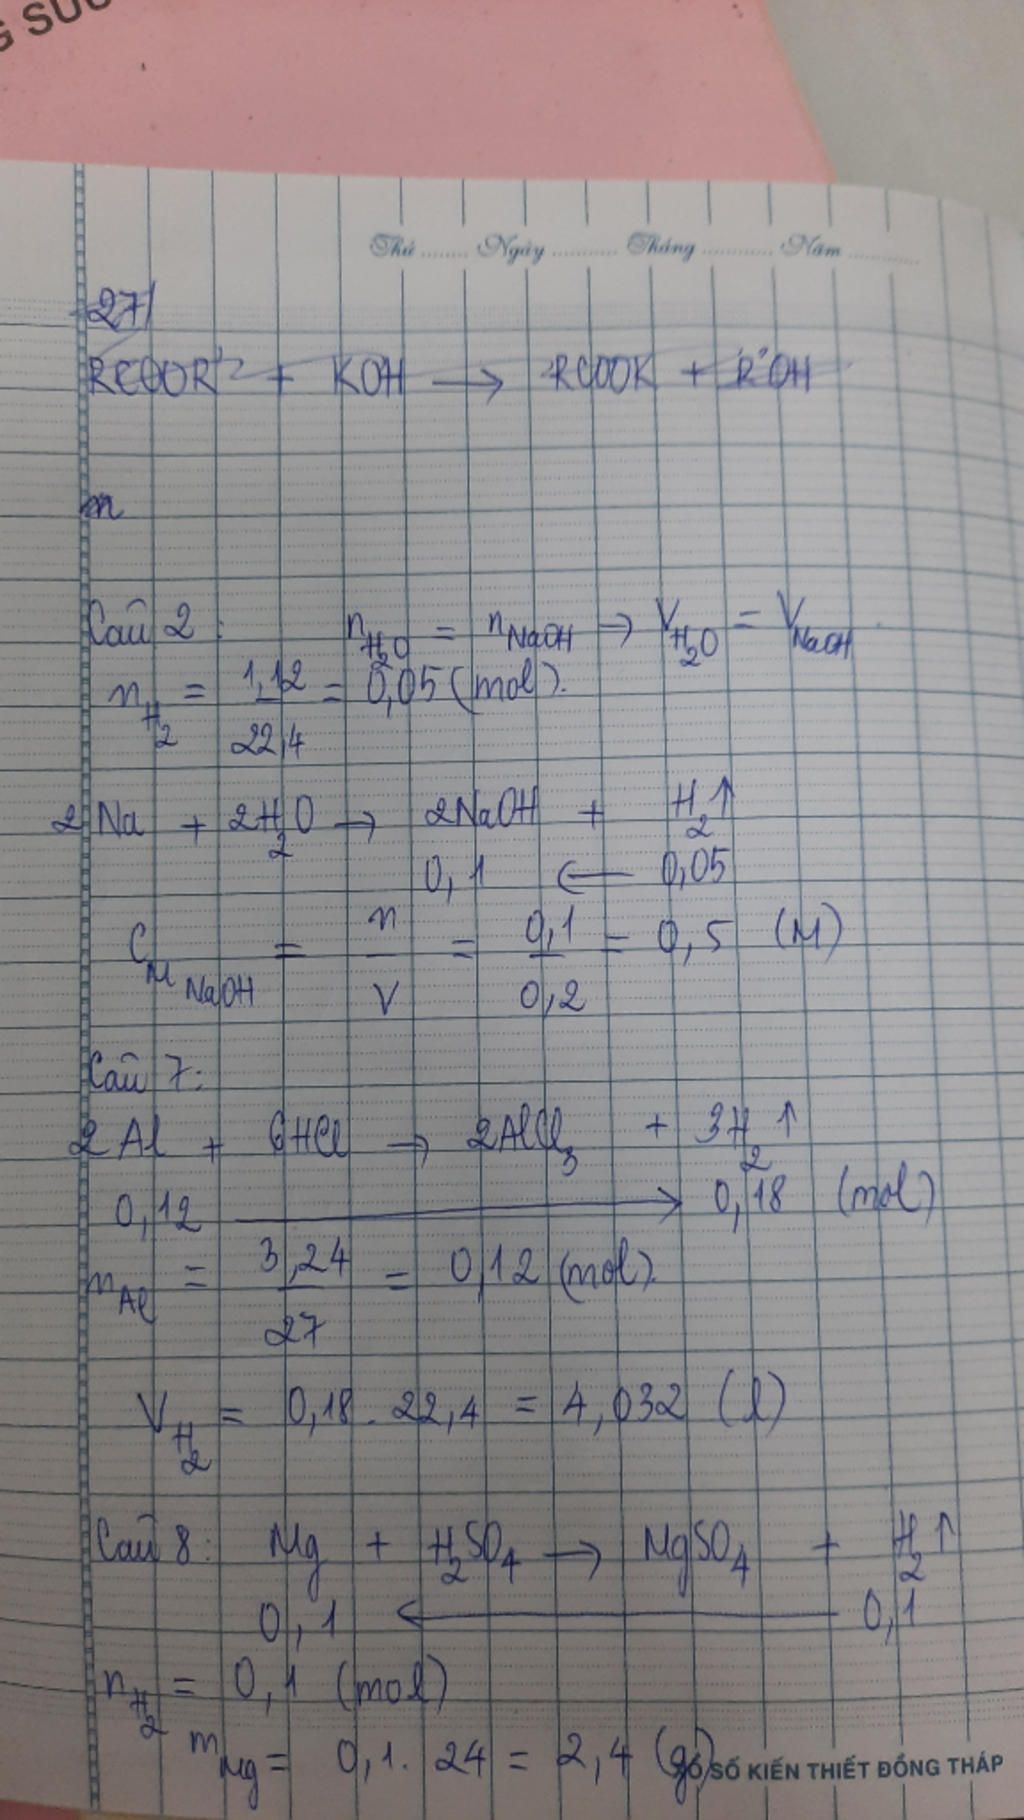 G SUC
Thứ ........ Ngày ............ Tháng ............. Năm .............
27/
RCOOR' + KOH → RCOOK + R'OH
m
Câu 2: nH₂O = nNaOH → VH₂O = VNaOH
nH₂ = 1,12/22,4 = 0,05 (mol).
2Na + 2H₂O → 2NaOH + H₂↑
0,1 ← 0,05
CM NaOH = n/V = 0,1/0,2 = 0,5 (M)
Câu 7:
2Al + 6HCl → 2AlCl₃ + 3H₂↑
0,12 → 0,18 (mol)
nAl = 3,24/27 = 0,12 (mol).
VH₂ = 0,18 . 22,4 = 4,032 (l)
Câu 8: Mg + H₂SO₄ → MgSO₄ + H₂↑
0,1 ← 0,1
nH₂ = 0,1 (mol)
mMg = 0,1 . 24 = 2,4 (g)
SỐ KIẾN THIẾT ĐỒNG THÁP